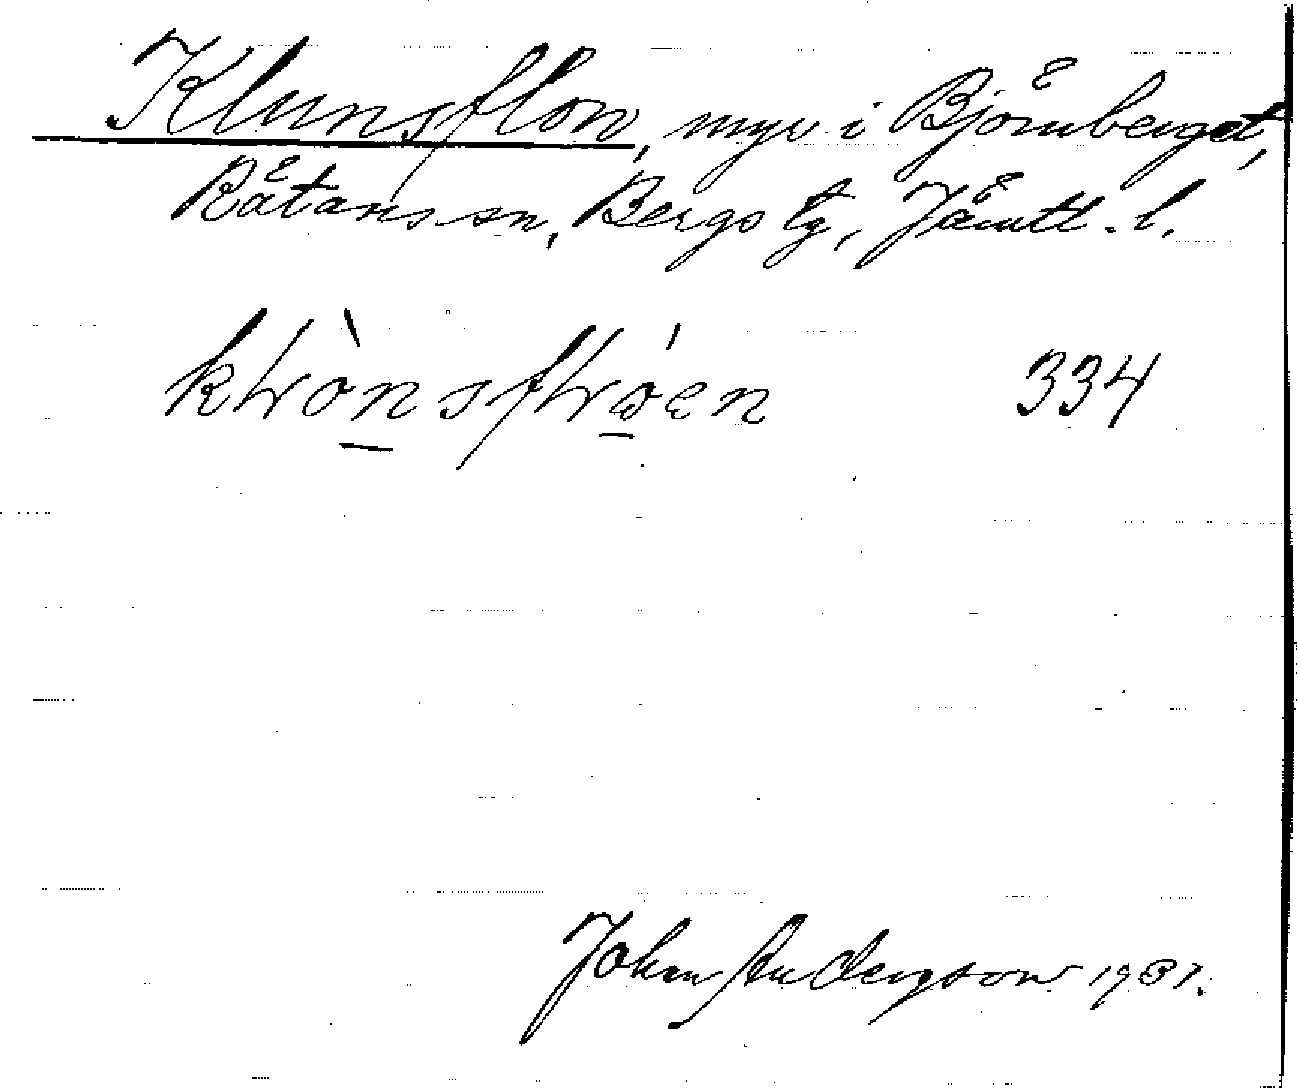 Klunsflon, myr i Björnberget,
Rätans sn, Bergs tg, Jämtl. l.
334
Johan Andersson 1937.